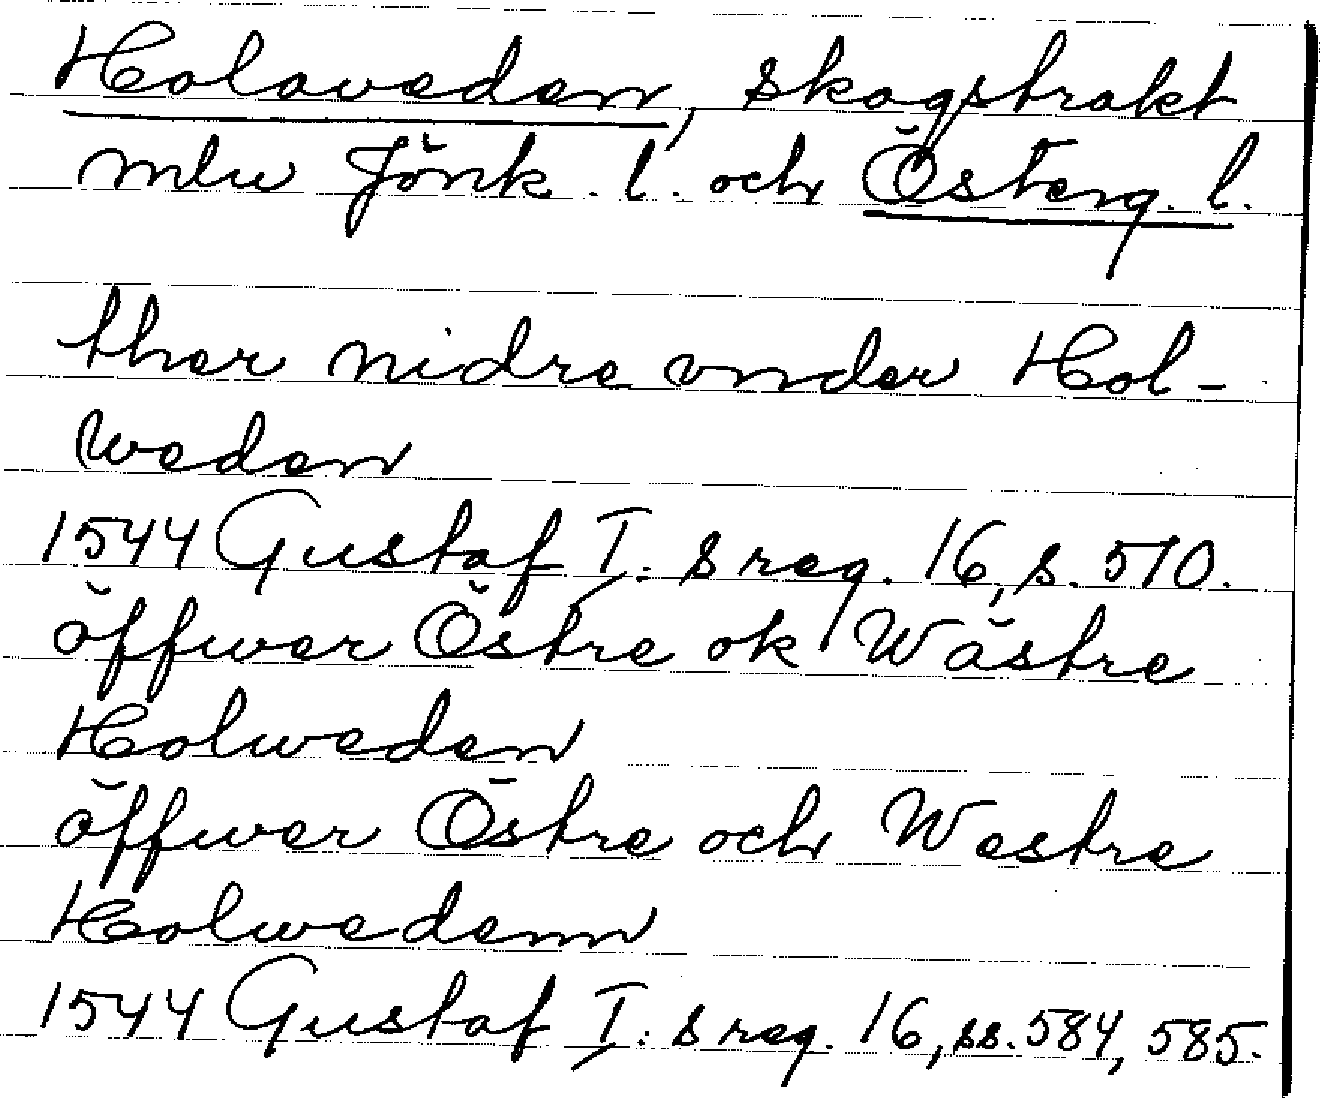 Holaveden, skogstrakt
mlu Jönk. l. och Österg. l.
ther nidre vnder Hol-
weden
1544 Gustaf I:s reg. 16, s. 570.
öffwer Östre ok Wästre
Holweden
öffwer Östre och Westre
Holwedenn
1544 Gustaf I:s reg. 16, ss. 584, 585.